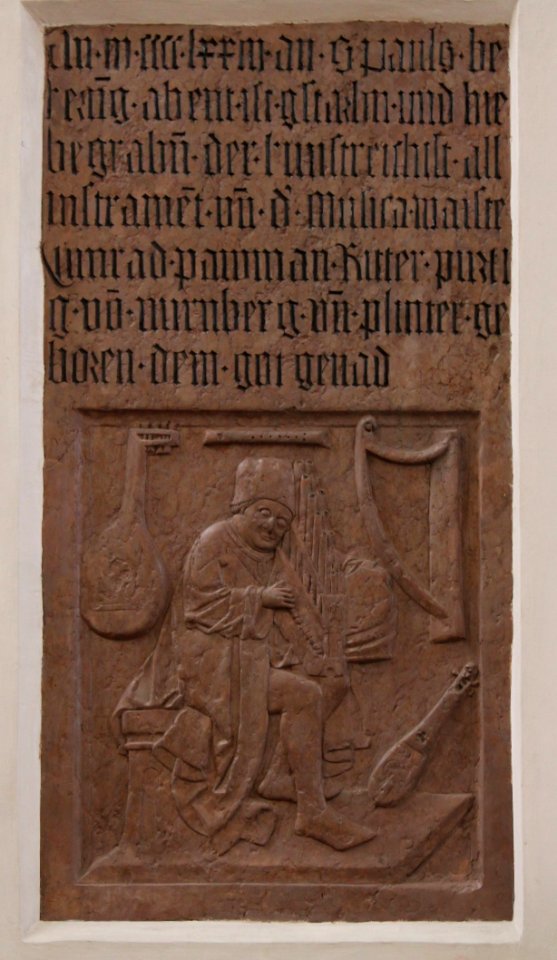 An · m · cccc · lxxiii · an · S · pauls · be
kerūg · abent · ist · gstarbn · und · hie
begrabn̄ · der · kunstreichist · all
instramēt · vn̄ · d' · Musica · maiste
Cunrad · pawman · Ritter · purti
g · vō · nurnberg · vn̄ · plinter · ge
boren · dem · got genad